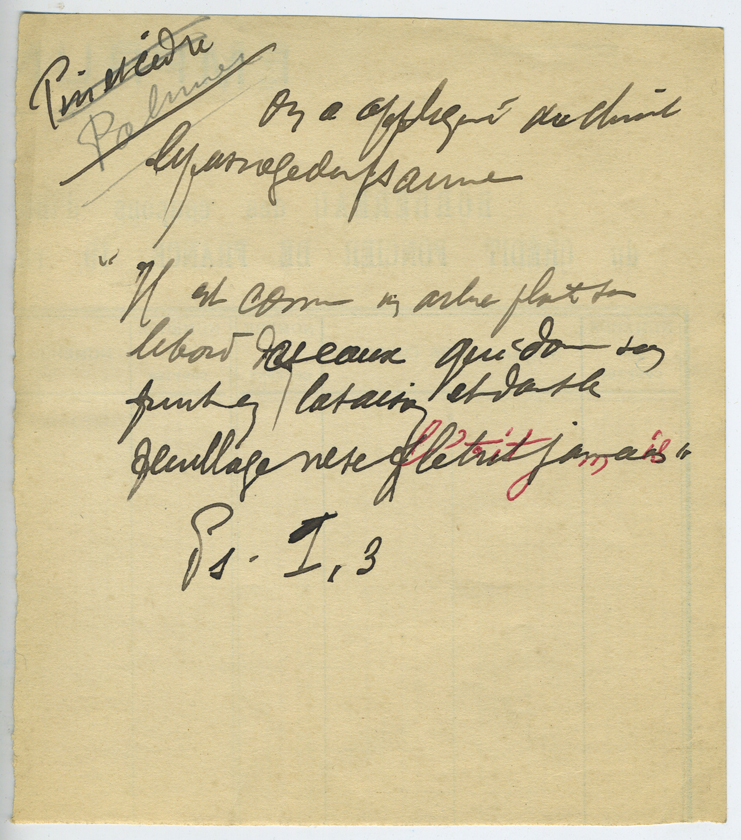 Pin et cèdre
Palmier
On a appliqué au Christ
le passage du psaume
" Il est comme un arbre planté sur
le bord des eaux qui donne son
fruit en la saison et dont le
feuillage ne se flétrit jamais "
Ps. I, 3